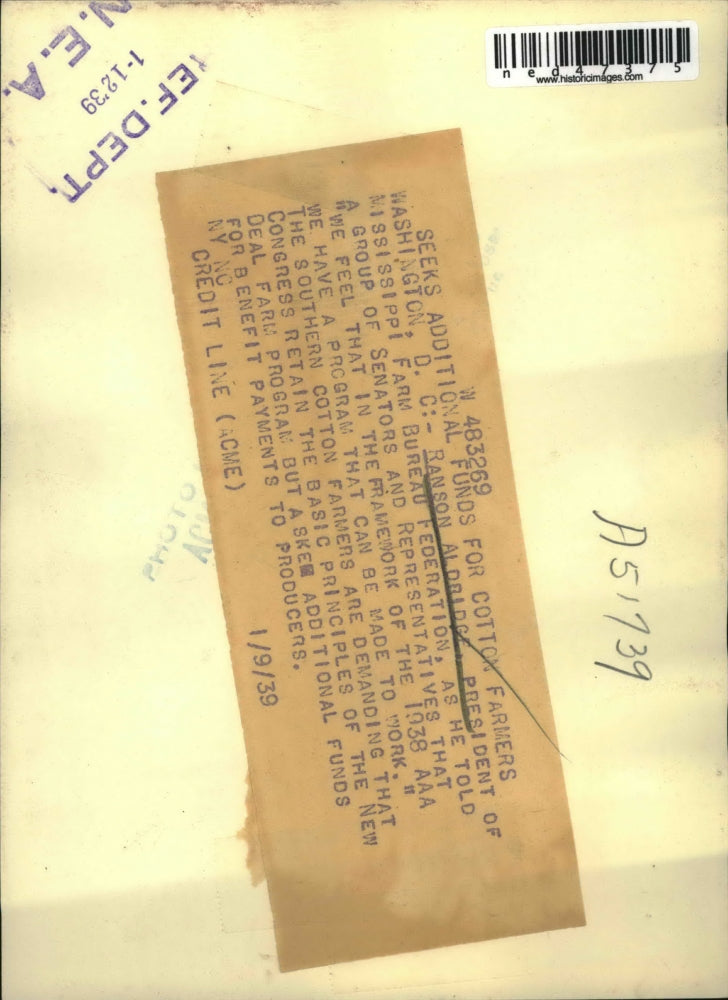 N.E.A.
1-12'39
REF. DEPT.
ned47375
www.historicimages.com
W 483269
SEEKS ADDITIONAL FUNDS FOR COTTON FARMERS
WASHINGTON, D. C:- RANSON ALDRIDGE PRESIDENT OF
MISSISSIPPI FARM BUREAU FEDERATION, AS HE TOLD
A GROUP OF SENATORS AND REPRESENTATIVES THAT
"WE FEEL THAT IN THE FRAMEWORK OF THE 1938 AAA
WE HAVE A PROGRAM THAT CAN BE MADE TO WORK."
THE SOUTHERN COTTON FARMERS ARE DEMANDING THAT
CONGRESS RETAIN THE BASIC PRINCIPLES OF THE NEW
DEAL FARM PROGRAM BUT ASKED ADDITIONAL FUNDS
FOR BENEFIT PAYMENTS TO PRODUCERS.
NY NO
CREDIT LINE (ACME) 1/9/39
PHOTO
A51739